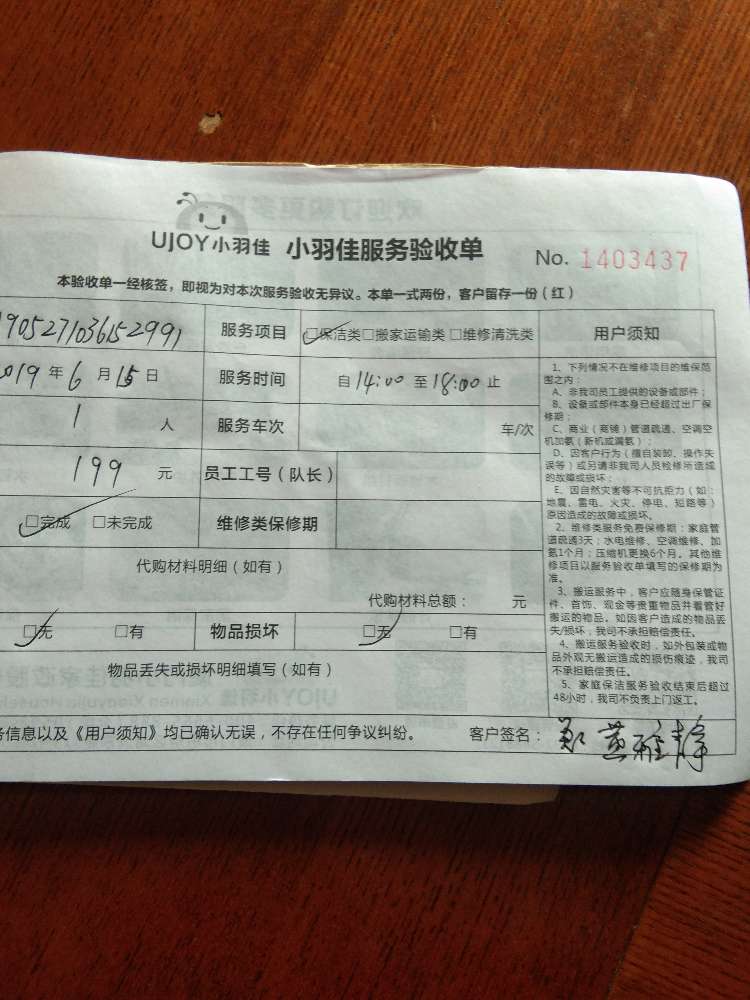 UJOY小羽佳 小羽佳服务验收单 No. 1403437
本验收单一经核签，即视为对本次服务验收无异议。本单一式两份，客户留存一份（红）
服务项目 □保洁类□搬家运输类□维修清洗类
2019 年 6 月 15 日 服务时间 自 14:00 至 18:00 止
1 人 服务车次 车/次
199 元 员工工号（队长）
□完成 □未完成 维修类保修期
代购材料明细（如有）
代购材料总额： 元
□无 □有 物品损坏 □无 □有
物品丢失或损坏明细填写（如有）
务信息以及《用户须知》均已确认无误，不存在任何争议纠纷。 客户签名： 郑黄雅静
用户须知
1、下列情况不在维修项目的维保范
围之内：
A、非我司员工提供的设备或部件；
B、设备或部件本身已经超过出厂保
修期；
C、商业（商铺）管道疏通、空调空
机加氨（新机或漏氨）；
D、因客户行为（擅自装卸、操作失
误等）或另请非我司人员检修所造成
的故障或损坏；
E、因自然灾害等不可抗拒力（如：
地震、雷电、火灾、停电、短路等）
原因造成的故障或损坏。
2、维修类服务免费保修期：家庭管
道疏通3天；水电维修、空调维修、加
氨1个月；压缩机更换6个月。其他维
修项目以服务验收单填写的保修期为
准。
3、搬运服务中，客户应随身保管证
件、首饰、现金等贵重物品并看管好
搬运的物品。如因客户造成的物品丢
失/损坏，我司不承担赔偿责任。
4、搬运服务验收时，如外包装或物
品外观无搬运造成的损伤痕迹，我司
不承担赔偿责任。
5、家庭保洁服务验收结束后超过
48小时，我司不负责上门返工。